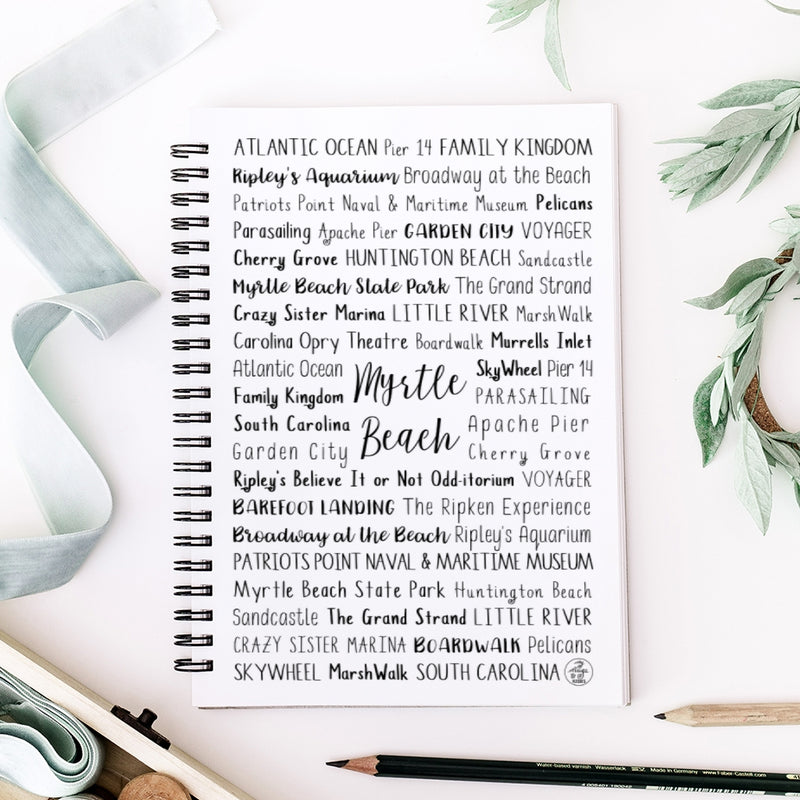 ATLANTIC OCEAN Pier 14 FAMILY KINGDOM
Ripley's Aquarium Broadway at the Beach
Patriots Point Naval & Maritime Museum Pelicans
Parasailing Apache Pier GARDEN CITY VOYAGER
Cherry Grove HUNTINGTON BEACH Sandcastle
Myrtle Beach State Park The Grand Strand
Crazy Sister Marina LITTLE RIVER MarshWalk
Carolina Opry Theatre Boardwalk Murrells Inlet
Atlantic Ocean Myrtle SkyWheel Pier 14
Family Kingdom PARASAILING
South Carolina Beach Apache Pier
Garden City Cherry Grove
Ripley's Believe It or Not Odd-itorium VOYAGER
BAREFOOT LANDING The Ripken Experience
Broadway at the Beach Ripley's Aquarium
PATRIOTS POINT NAVAL & MARITIME MUSEUM
Myrtle Beach State Park Huntington Beach
Sandcastle The Grand Strand LITTLE RIVER
CRAZY SISTER MARINA BOARDWALK Pelicans
SKYWHEEL MarshWalk SOUTH CAROLINA
Water-based varnish Wasserlack Made in Germany www.Faber-Castell.com